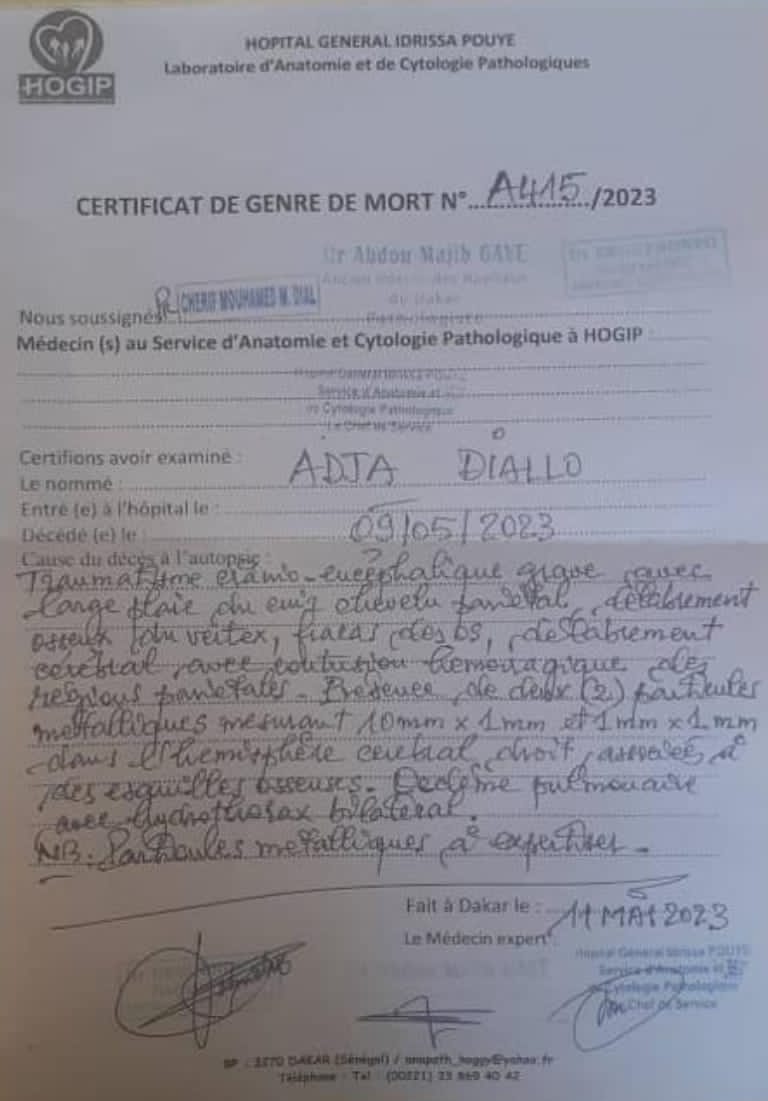 HOGIP
HOPITAL GENERAL IDRISSA POUYE
Laboratoire d'Anatomie et de Cytologie Pathologiques
CERTIFICAT DE GENRE DE MORT N° A415 /2023
Dr Abdou Majib GAYE
Ancien Interne des Hopitaux
de Dakar
Pathologiste
CHERIF MOUHAMED M. DIAL
Nous soussignés
Médecin (s) au Service d'Anatomie et Cytologie Pathologique à HOGIP
Hopital Général Idrissa POUYE
Service d'Anatomie et
de Cytologie Pathologique
Le Chef de Service
Certifions avoir examiné :
Le nommé : ADJA DIALLO
Entré (e) à l'hôpital le :
Décédé (e) le : 09/05/2023
Cause du décès à l'autopsie :
Traumatisme crânio-encéphalique grave avec
large plaie du cuir chevelu pariétal, délabrement
osseux du vertex, fracas des os, délabrement
cérébral avec contusion hémorragique des
régions pariétales. Présence de deux (2) particules
métalliques mesurant 10mm x 1mm et 1mm x 1mm
dans l'hémisphère cérébral droit, associés à
des esquilles osseuses. Oedème pulmonaire
avec hydrothorax bilatéral.
NB: Particules métalliques à expertiser.
Fait à Dakar le : 11 MAI 2023
Le Médecin expert
Hopital Général Idrissa POUYE
Service d'Anatomie et
de Cytologie Pathologique
Le Chef de Service
BP : 3270 DAKAR (Sénégal) / anapath_hoggy@yahoo.fr
Téléphone - Tel : (00221) 33 869 40 42